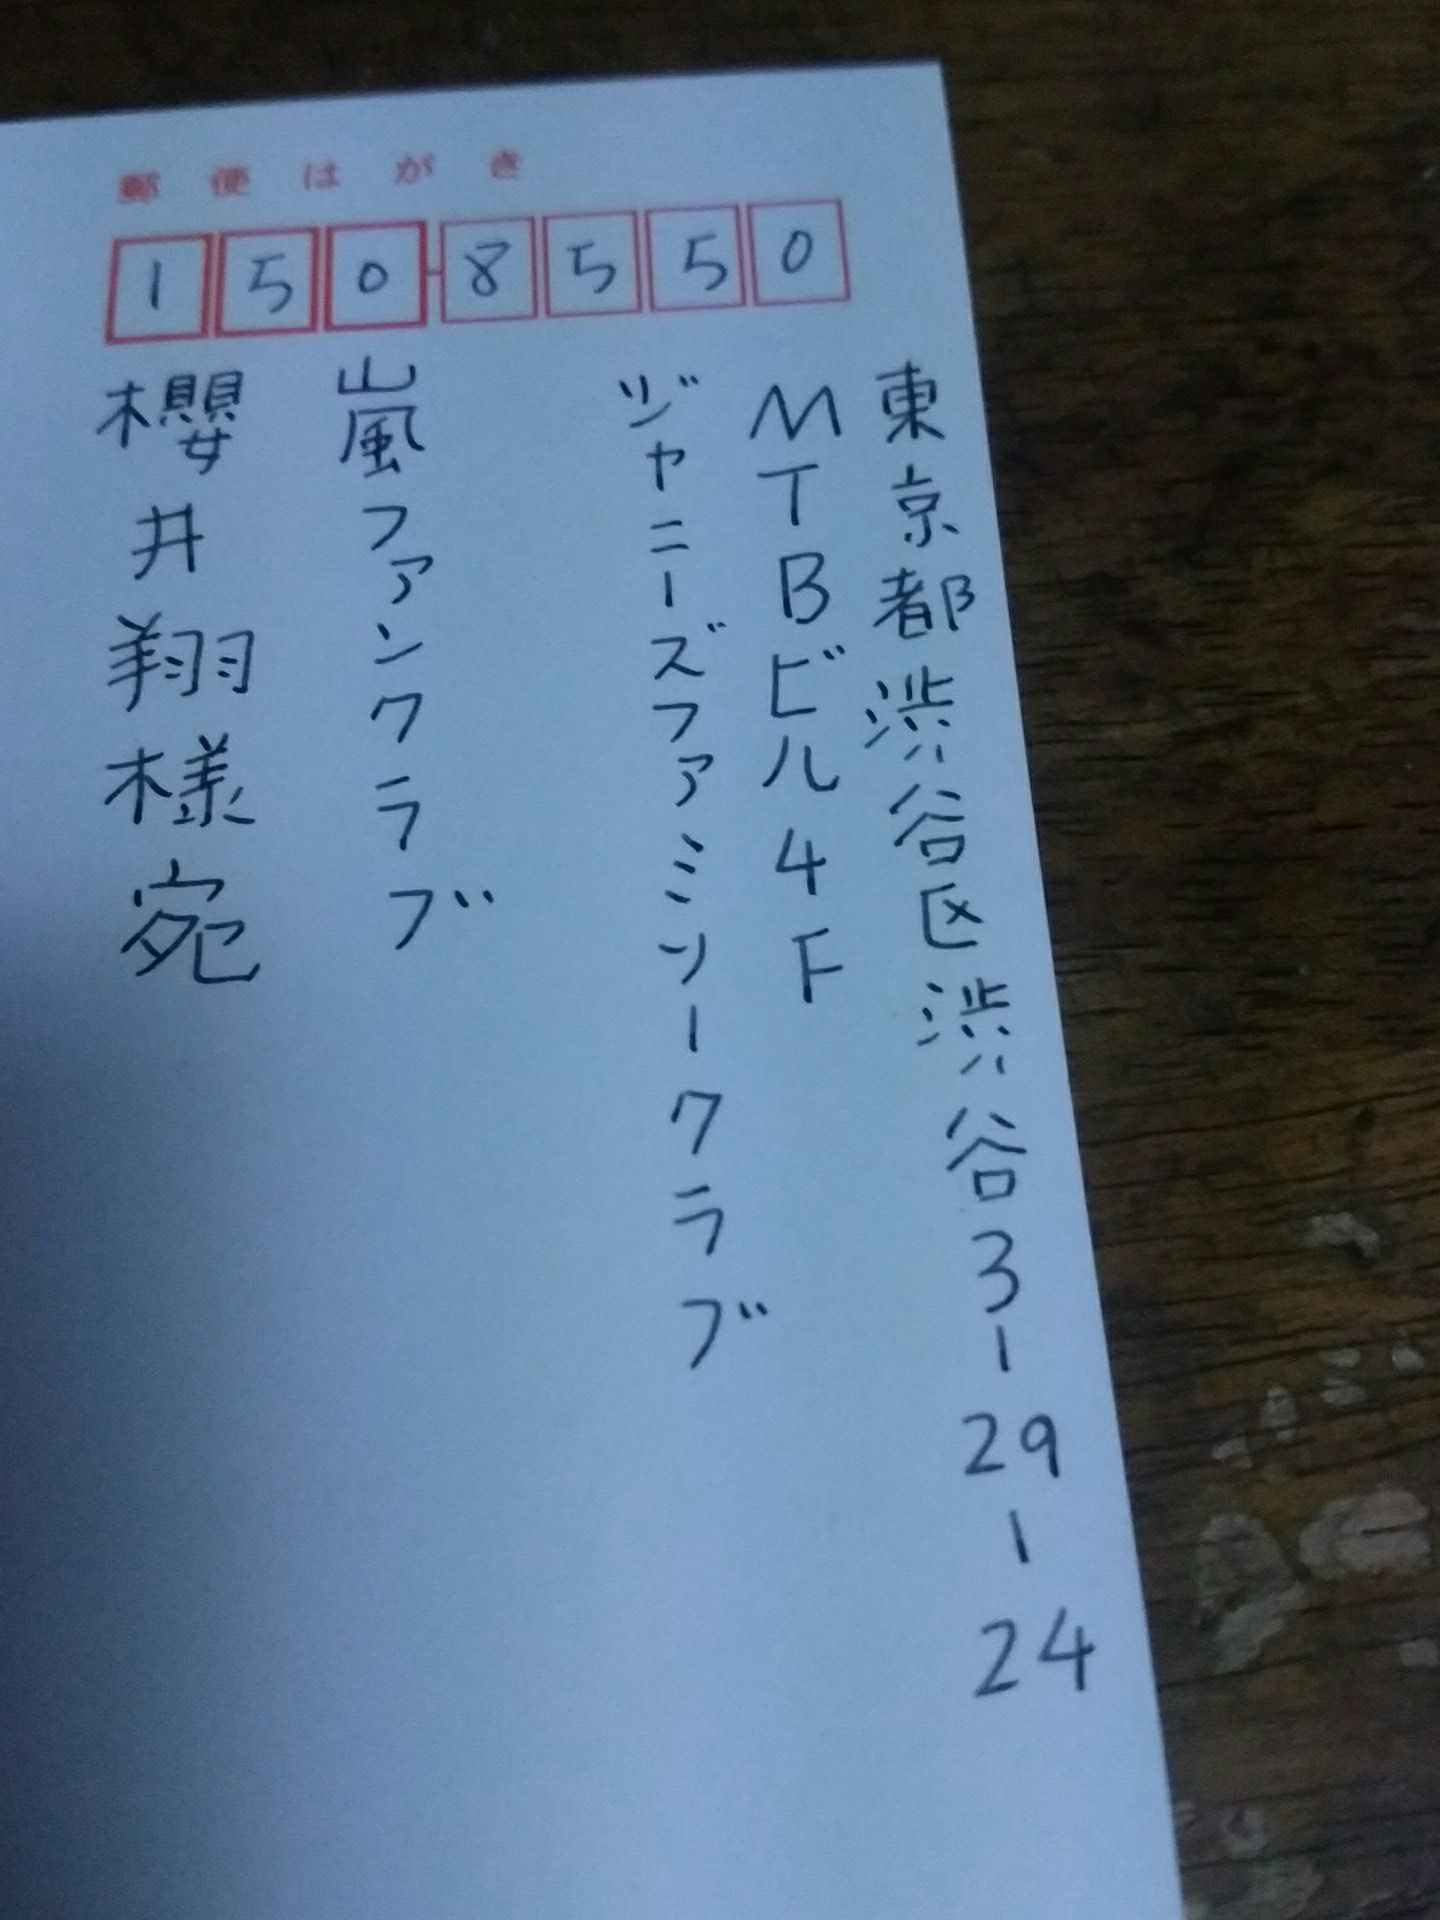 郵便はがき
150-8550
東京都渋谷区渋谷3-29-24
MTBビル4F
ジャニーズファミリークラブ
嵐ファンクラブ
櫻井翔様宛